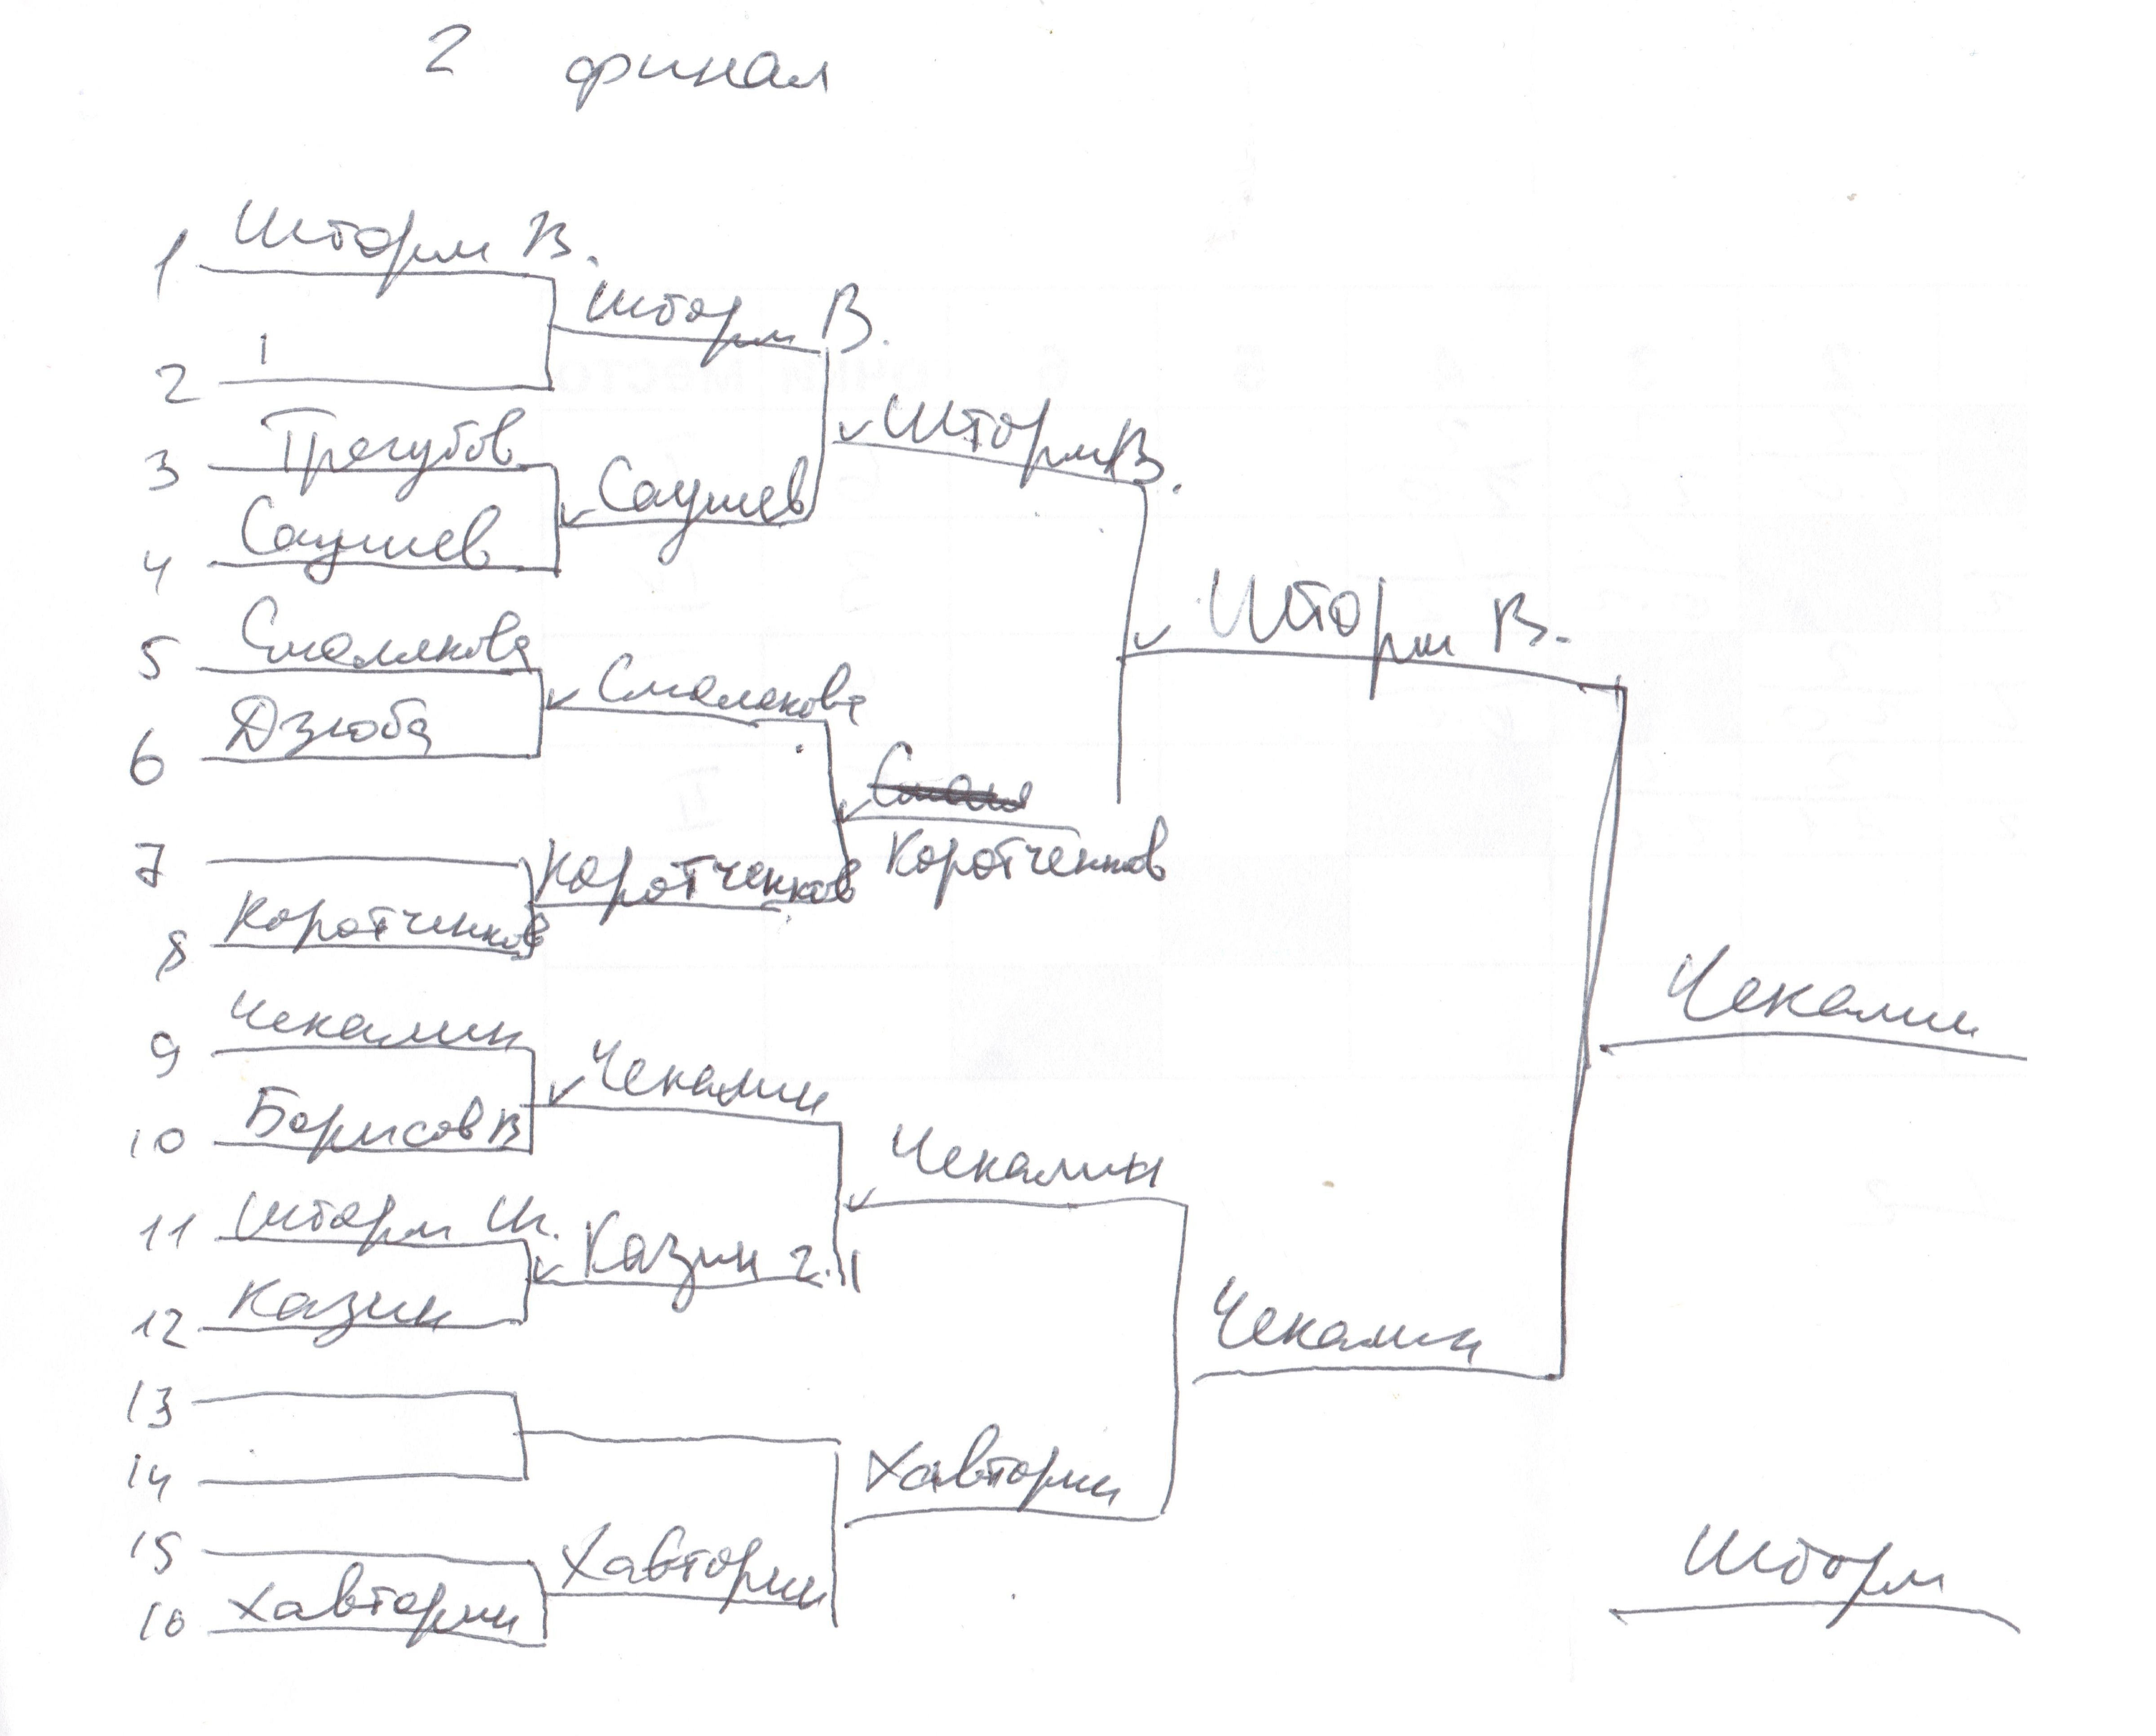 2 финал
1 Шторм В.
Шторм В.
2
3 Трегубов
Шторм В.
Саушев
4 Саушев
5 Смолякова
Шторм В.
Смолякова
6 Дзюба
7
Коротченков
Коротченков
8 Коротченков
9 Чекалин
Чекалин
Чекалин
10 Борисов В
Чекалин
11 Шторм И.
Казин г.
12 Казин
Чекалин
13
14
Хавторин
15
Хавторин
16 Хавторин
Шторм